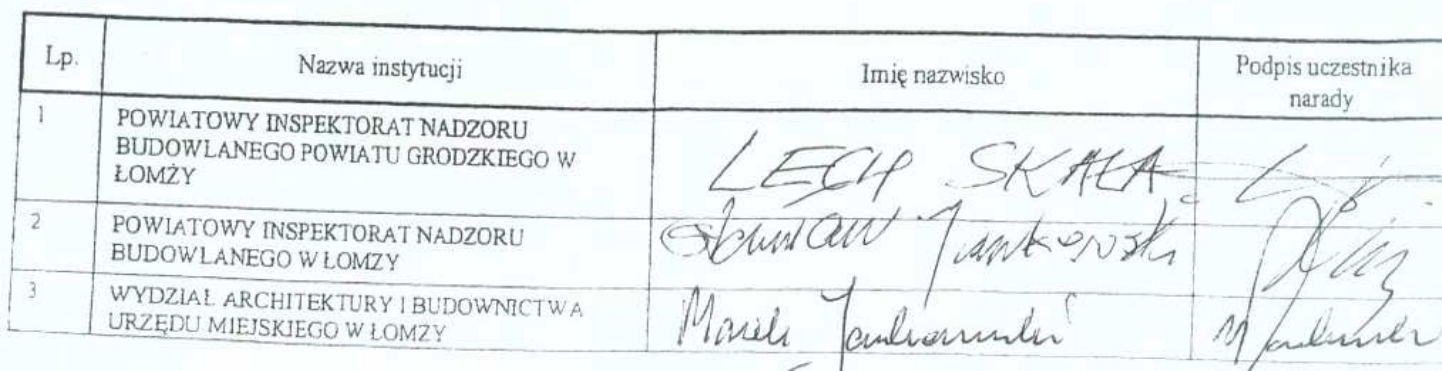 Lp. Nazwa instytucji Imię nazwisko Podpis uczestnika
narady
1 POWIATOWY INSPEKTORAT NADZORU
BUDOWLANEGO POWIATU GRODZKIEGO W
ŁOMŻY
LECH SKAŁA
2 POWIATOWY INSPEKTORAT NADZORU
BUDOWLANEGO W ŁOMZY
Jankowski
3 WYDZIAŁ ARCHITEKTURY I BUDOWNICTWA
URZĘDU MIEJSKIEGO W ŁOMZY
Marek